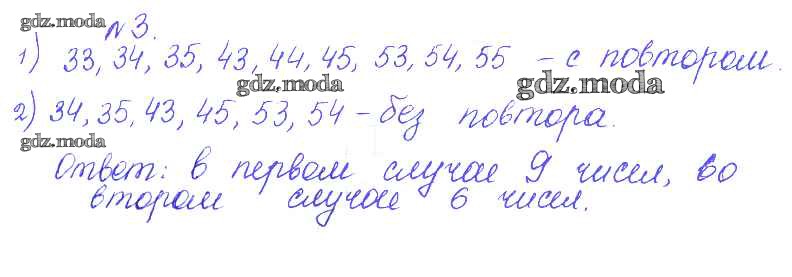 gdz.moda
№3.
1) 33, 34, 35, 43, 44, 45, 53, 54, 55 - с повтором.
gdz.moda gdz.moda
2) 34, 35, 43, 45, 53, 54 - без повтора.
gdz.moda
Ответ: в первом случае 9 чисел, во
втором случае 6 чисел.